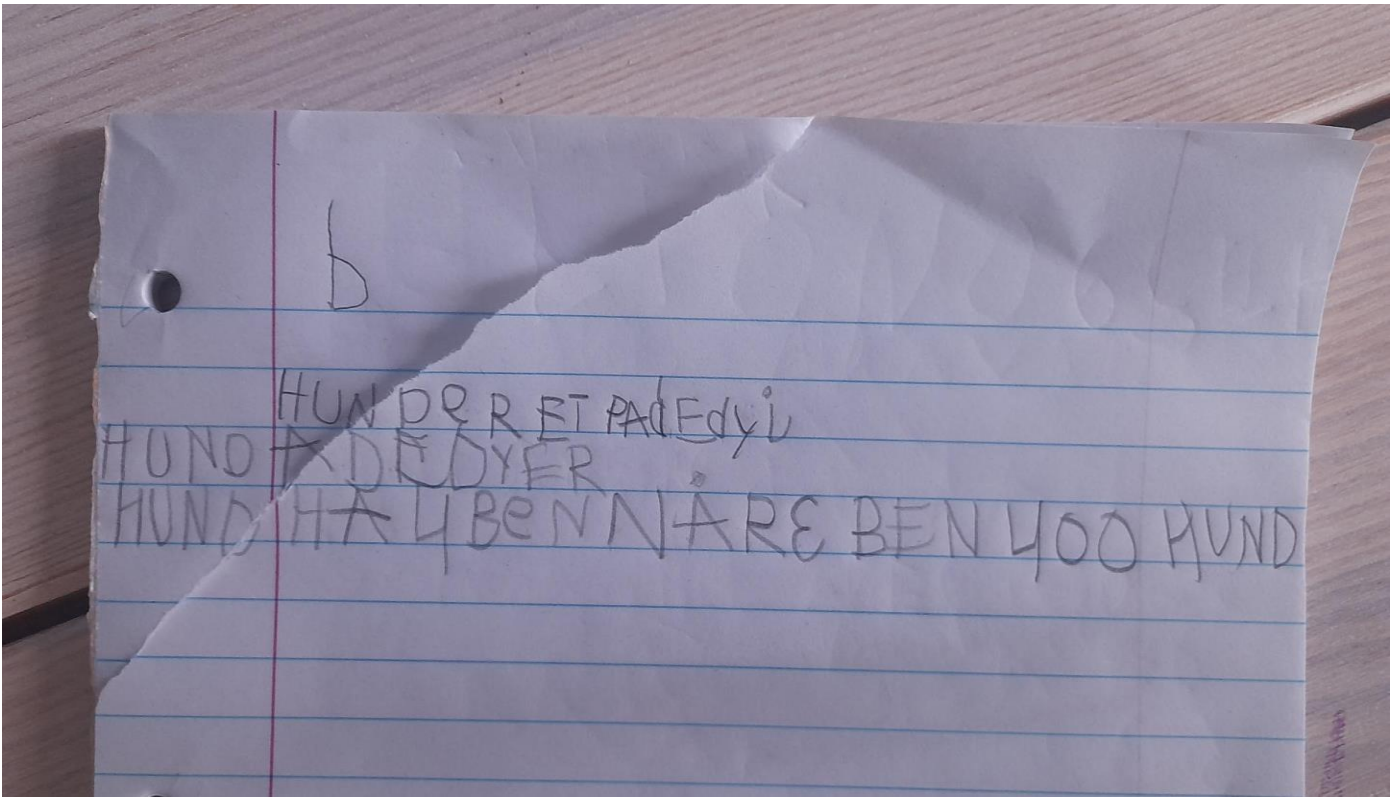 b
HUNDeR ET PAdEdyi
HUND ADEDYER
HUND HA 4 BeN NÅRE BEN 400 HUND